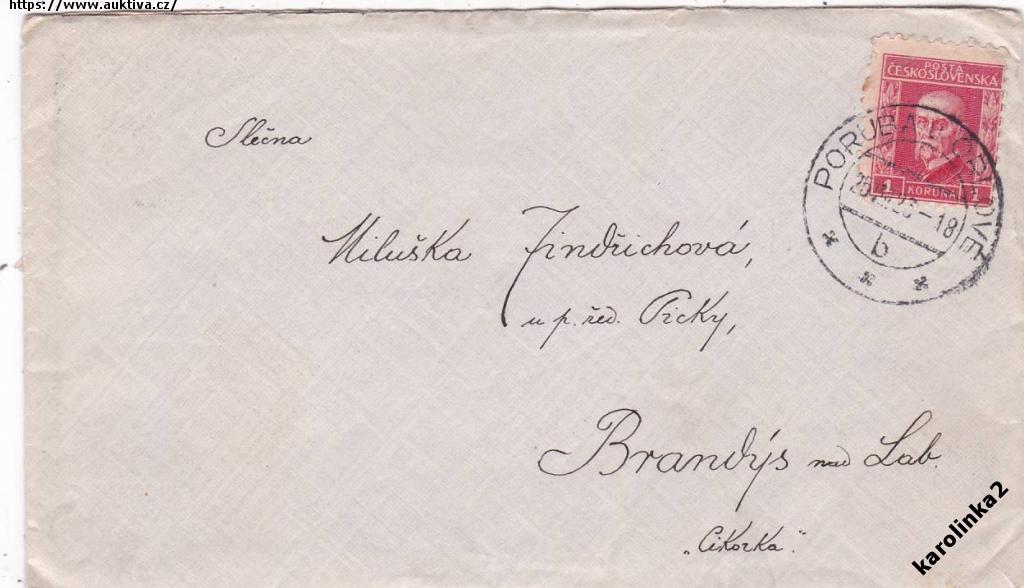 https://www.auktiva.cz/
POŠTA
ČESKOSLOVENSKÁ
1 KORUNA 1
PORUBA U ORLOVÉ
-18
b
Slečna
Miluška Jindřichová,
u p. řed. Picky,
Brandýs nad Lab.
"Cikorka".
karolinka2